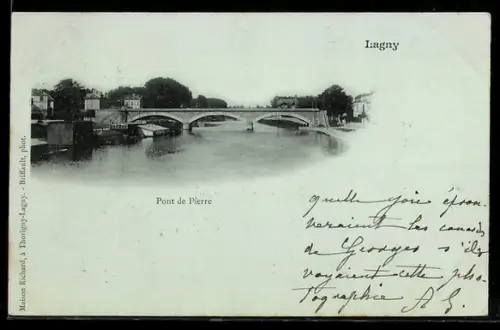 Lagny
Maison Richard, à Thorigny-Lagny. - Briffault, phot.
Pont de Pierre
quelle joie éprou-
veraient les canards
de Georges s'ils
voyaient cette pho-
tographie A G.